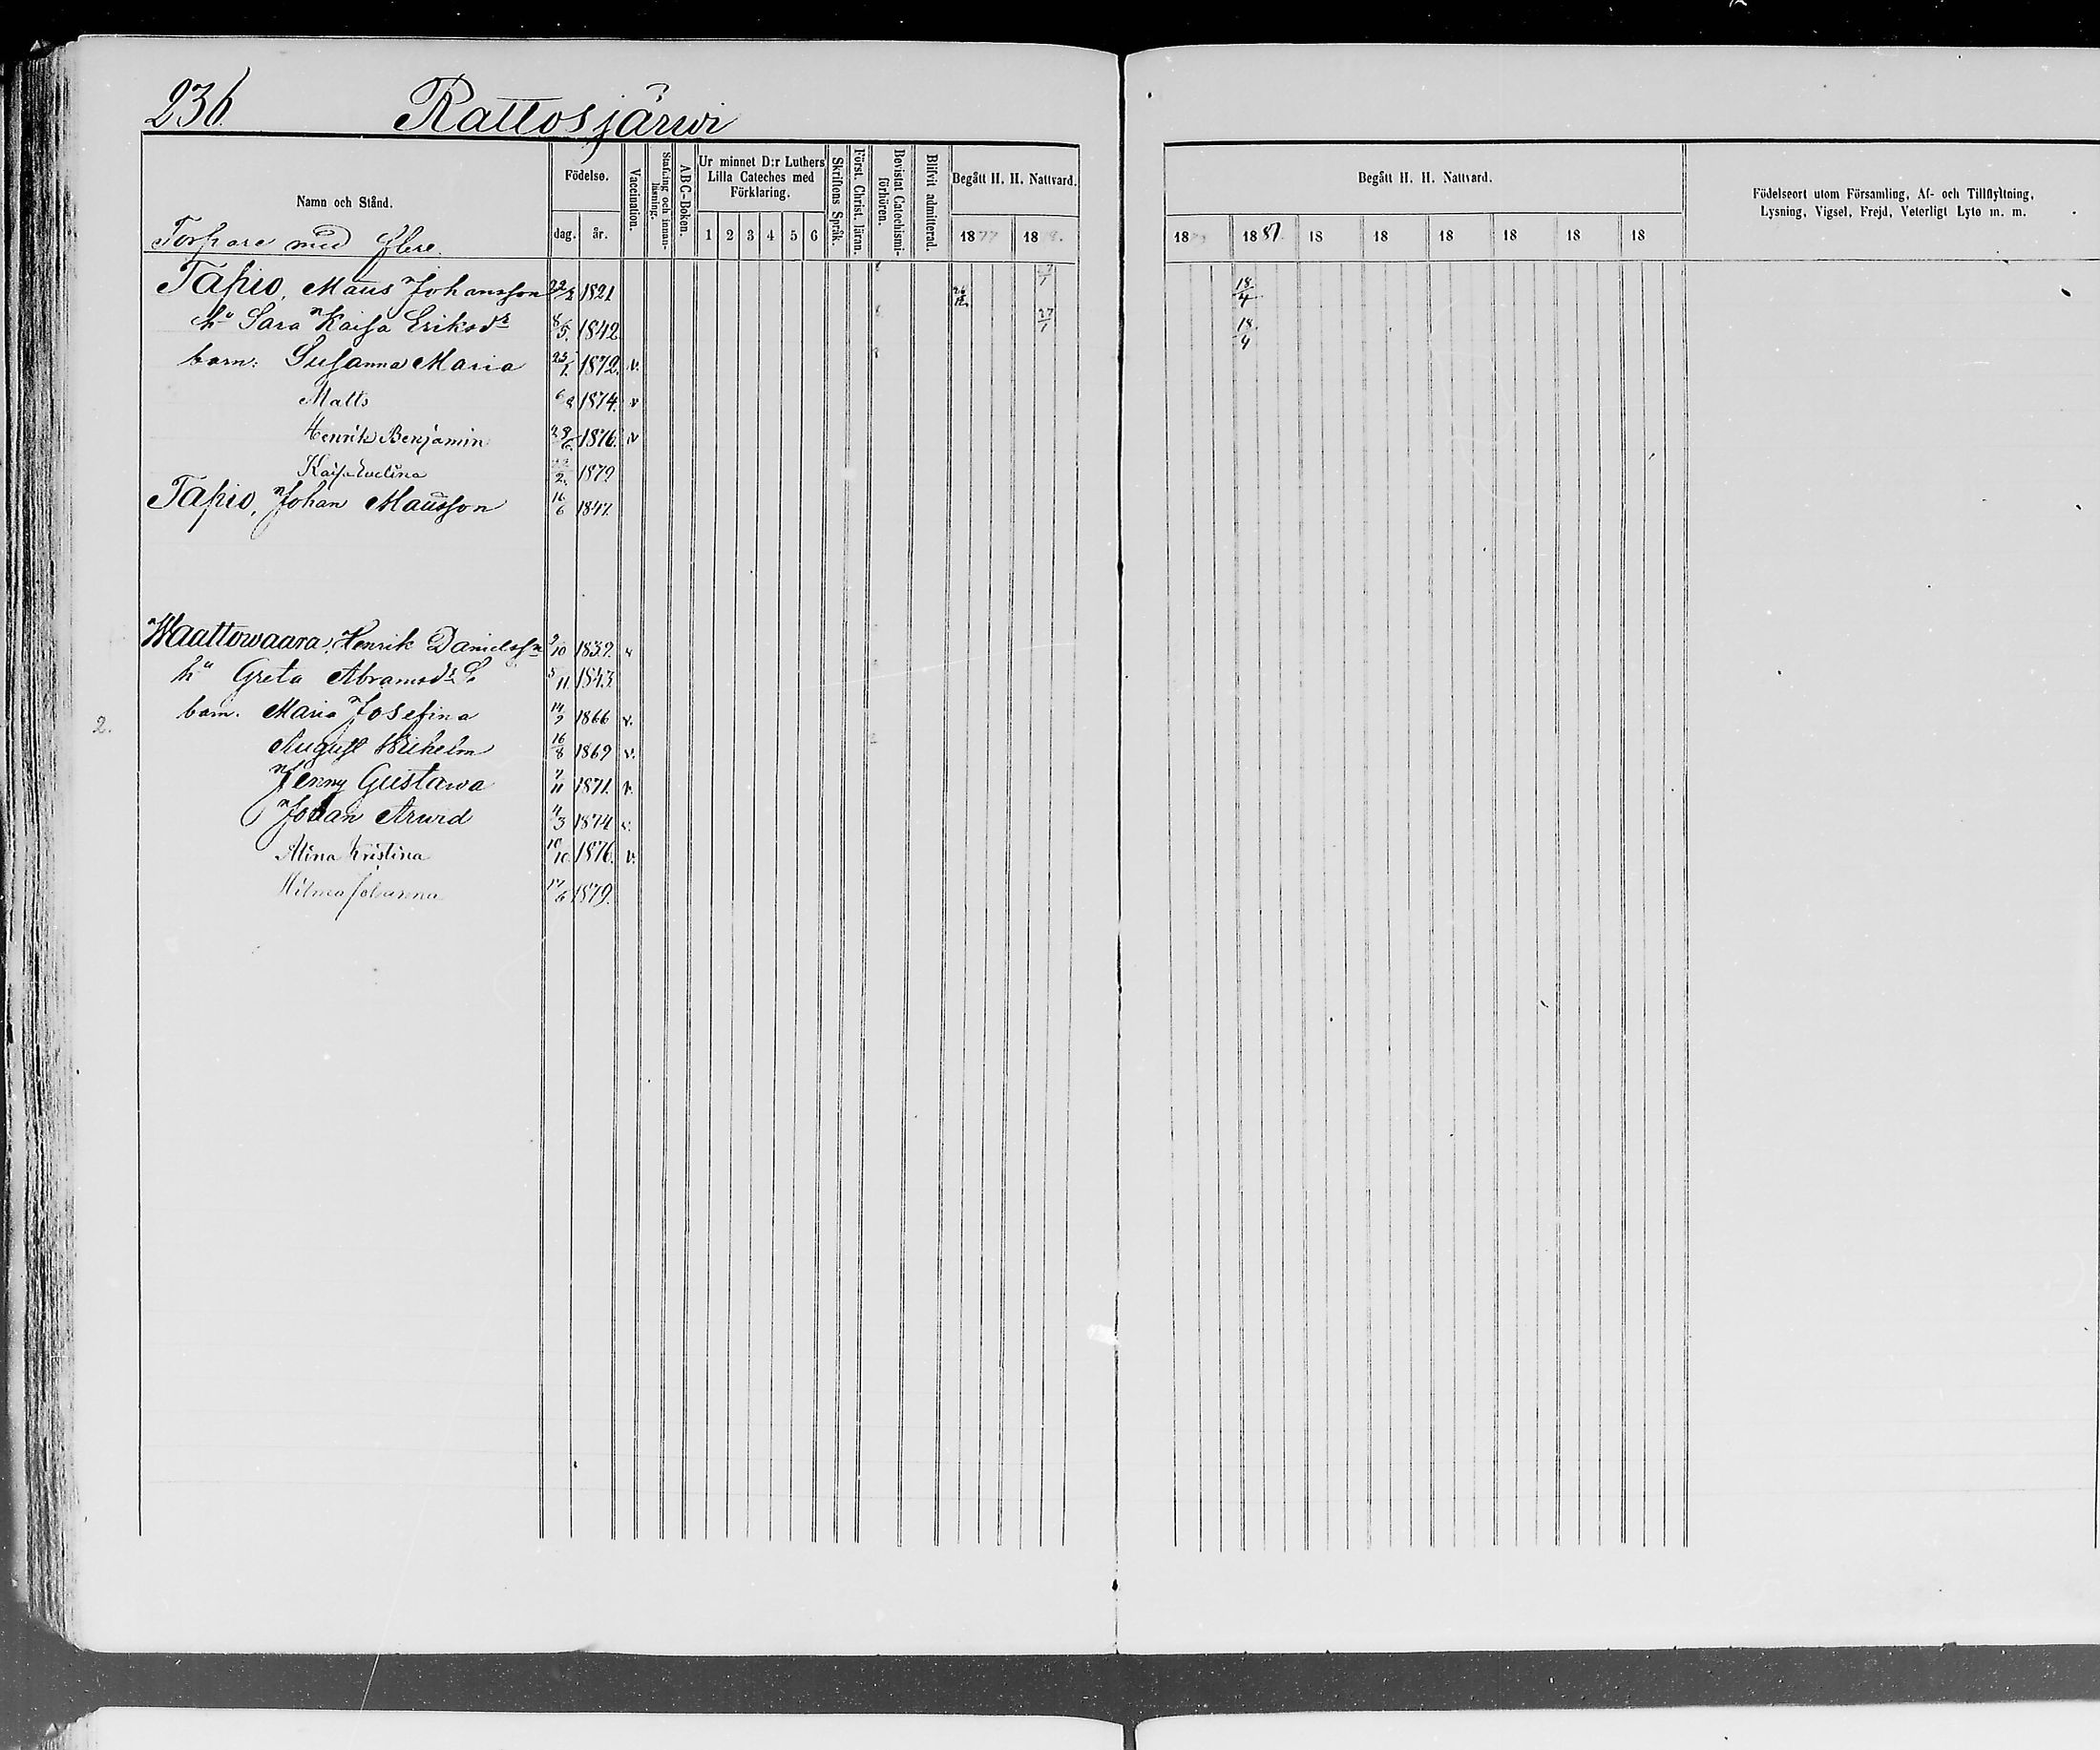 236.
Rattosjärwi
Namn och Stånd.
Födelse.
dag. år.
Vaccination.
Stafning och innan-läsning.
ABC-Boken.
Ur minnet D:r Luthers
Lilla Cateches med
Förklaring.
1 2 3 4 5 6
Skriftens Språk.
Först. Christ. läran.
Bevistat Catechismi-förhören.
Blifvit admitterad.
Begått H. H. Nattvard.
1877 18
Begått H. H. Nattvard.
18 1881. 18 18 18 18 18 18
Födelseort utom Församling, Af- och Tillflyttning,
Lysning, Vigsel, Frejd, Veterligt Lyte m. m.
Torpare med flere.
Tapio, Maŭs Johansson 22/2 1821 27/1 18/4
hu Sara Kaisa Eriksdr 8/5. 1842 27/1 18/4
barn: Susanna Maria 25/1. 1872. v.
Matts 1874. v
Henrik Benjamin 28/6. 1876. v
Kaisa Evelina 2. 1879
Tapio, Johan Maŭsson 16/6 1847.
Waattowaara, Henrik Danielssn 9/10 1839. v
hu Greta Abramsdr 5/11. 1843.
2.
barn. Maria Josefina 14/9 1866 v.
August Wilhelm 16/8 1869 v.
Jenny Gustawa 7/11 1871. v.
Johan Arwid 4/3 1874 v.
Alina Kristina 10/10. 1876. v.
Hilma Johanna 17/6 1879.